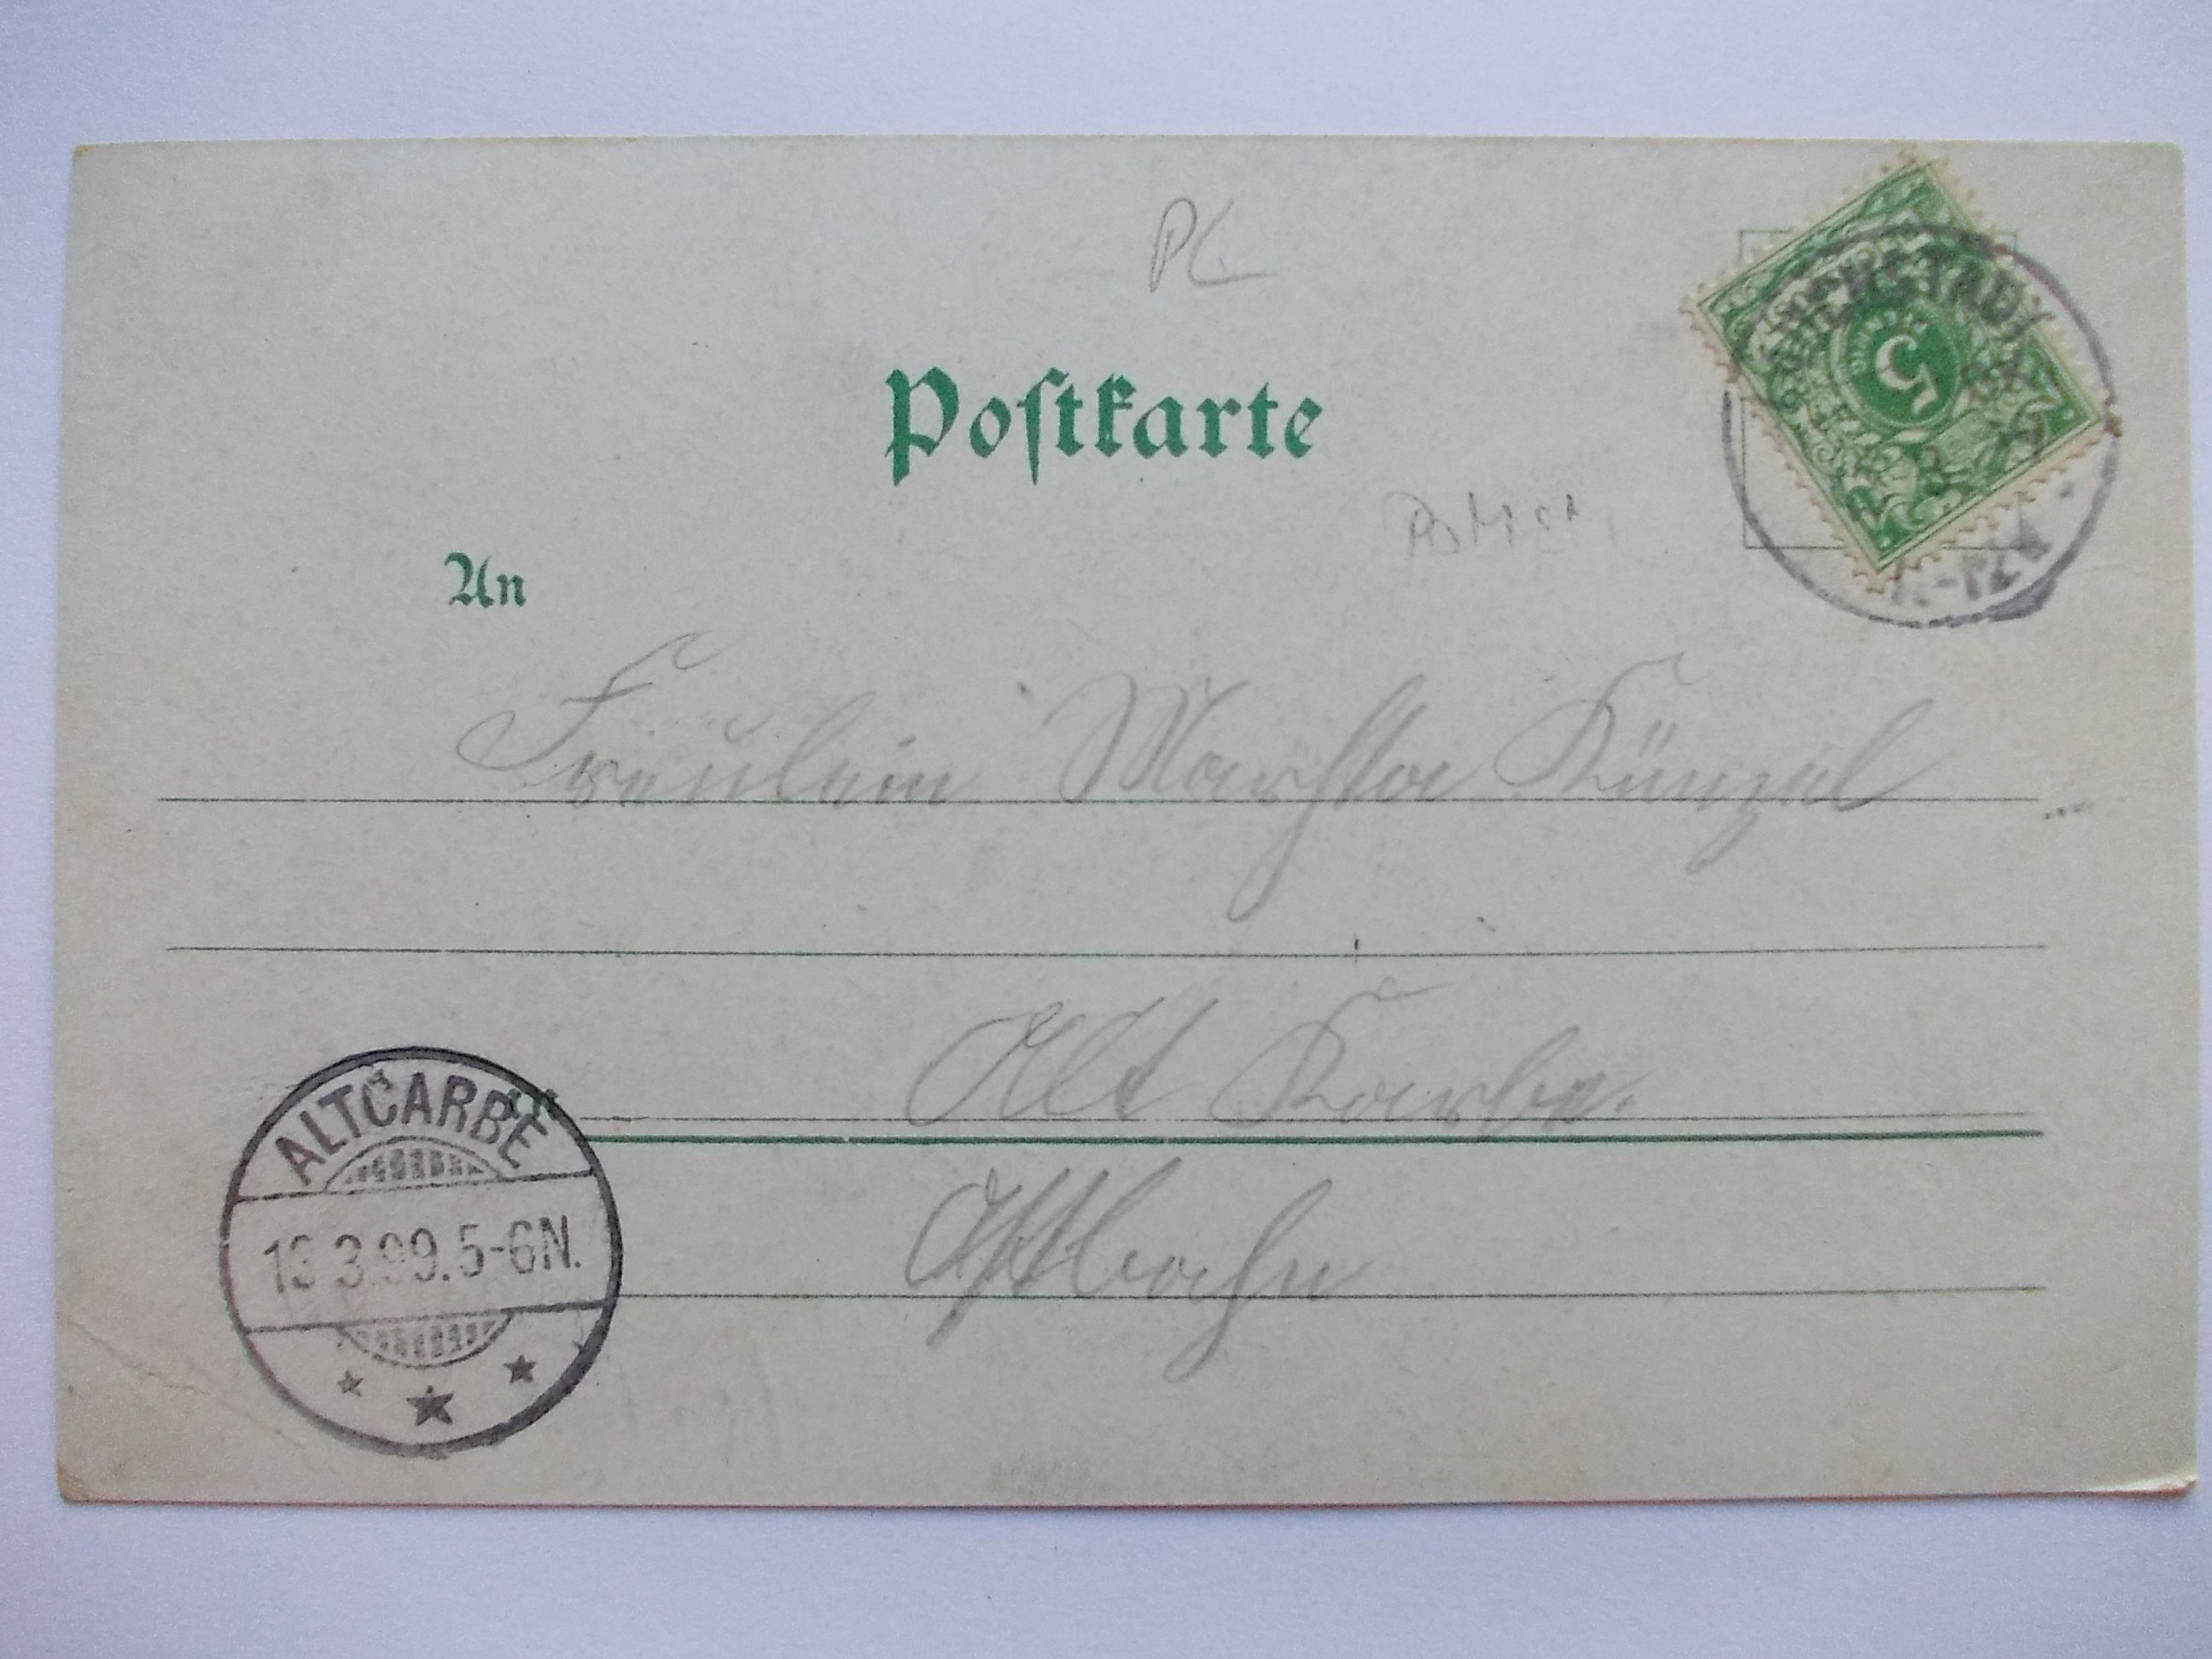 PC
Postkarte
An
Fräulein Martha Künzel
Alt Karbe.
Ostbahn
ALTCARBE
13 3.99.5-6N.
5